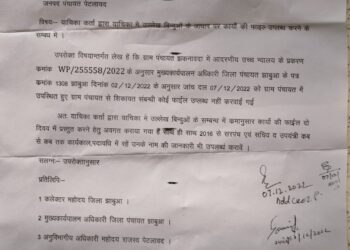 जनपद पंचायत पेटलावद
विषय:- याचिका कर्ता द्वारा याचिका में उल्लेख बिन्दुओं के आधार पर कार्यो की फाईल उपलब्ध करने के
सम्बध में ।
उपरोक्त विषयान्तर्गत लेख है कि ग्राम पंचायत झकनावदा में आदरणीय उच्च न्यायालय के प्रकरण
क्रमांक WP/255558/2022 के अनुसार मुख्यकार्यपालन अधिकारी जिला पंचायत झाबुआ के पत्र
कमांक 1308 झाबुआ दिनांक 02/12/2022 के अनुसार जांच दल 07/12/2022 को ग्राम पंचायत में
उपस्थित हुए ग्राम पंचायत से शिकायत संबन्धी कोई फाईल उपलब्ध नहीं करवाई गई
अतः याचिका कर्ता द्वारा याचिका में उल्लेख बिन्दुओं के सम्बन्ध में कमानुसार कार्यो की फाईल दो
दिवस में प्रस्तुत करने हेतु अवगत कराया गया है साथ ही साथ 2016 से सरपंच एवं सचिव व उपयंत्री कब
से कब तक कार्यकाल,पदायधि में रहे उनके नाम की जानकारी भी उपलब्ध करावें ।
सलग्न:- उपरोक्तानुसार
प्रतिलिपि:-
07.12.2022
Addl CEO Z.P.
1 कलेक्टर महोदय जिला झाबुआ ।
2 मुख्यकार्यपालन अधिकारी जिला पंचायत झाबुआ ।
3 अनुविभागीय अधिकारी महोदय राजस्व पेटलावद